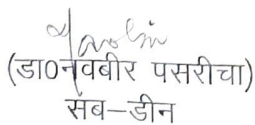 (डा०नवबीर पसरीचा)
सब–डीन